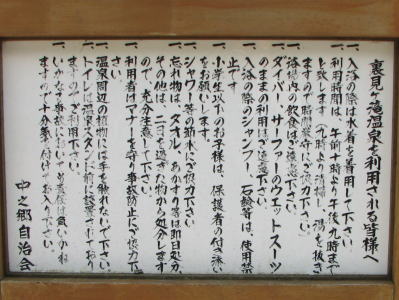 裏見ヶ滝温泉を利用される皆様へ
一、入浴の際は水着を着用して下さい。
一、利用時間は、午前十時より午後九時まで
と致します。(九時より清掃し湯を抜き
ますので時間厳守にご協力下さい。)
一、浴場内の飲食はご遠慮下さい。
一、ダイバー、サーファーのウエットスーツ
のままの利用はご遠慮下さい。
一、入浴の際のシャンプー、石鹸等は、使用禁
止です。
一、小学生以下のお子様は、保護者の付き添い
をお願いします。
一、シャワー等の節水にご協力下さい。
一、忘れ物は、タオル、あかすり等は即日処分、
その他は、二日を過ぎた物から処分します
ので、充分注意して下さい。
一、利用者はマナーを守り事故防止にご協力下
さい。
一、温泉周辺の植物には手を触れないで下さい。
一、トイレは温泉スタンド前に設置されており
ますのでご利用下さい。
一、いかなる事故においても責任は負いかね
ますので十分気を付けてお入り下さい。
中之郷自治会